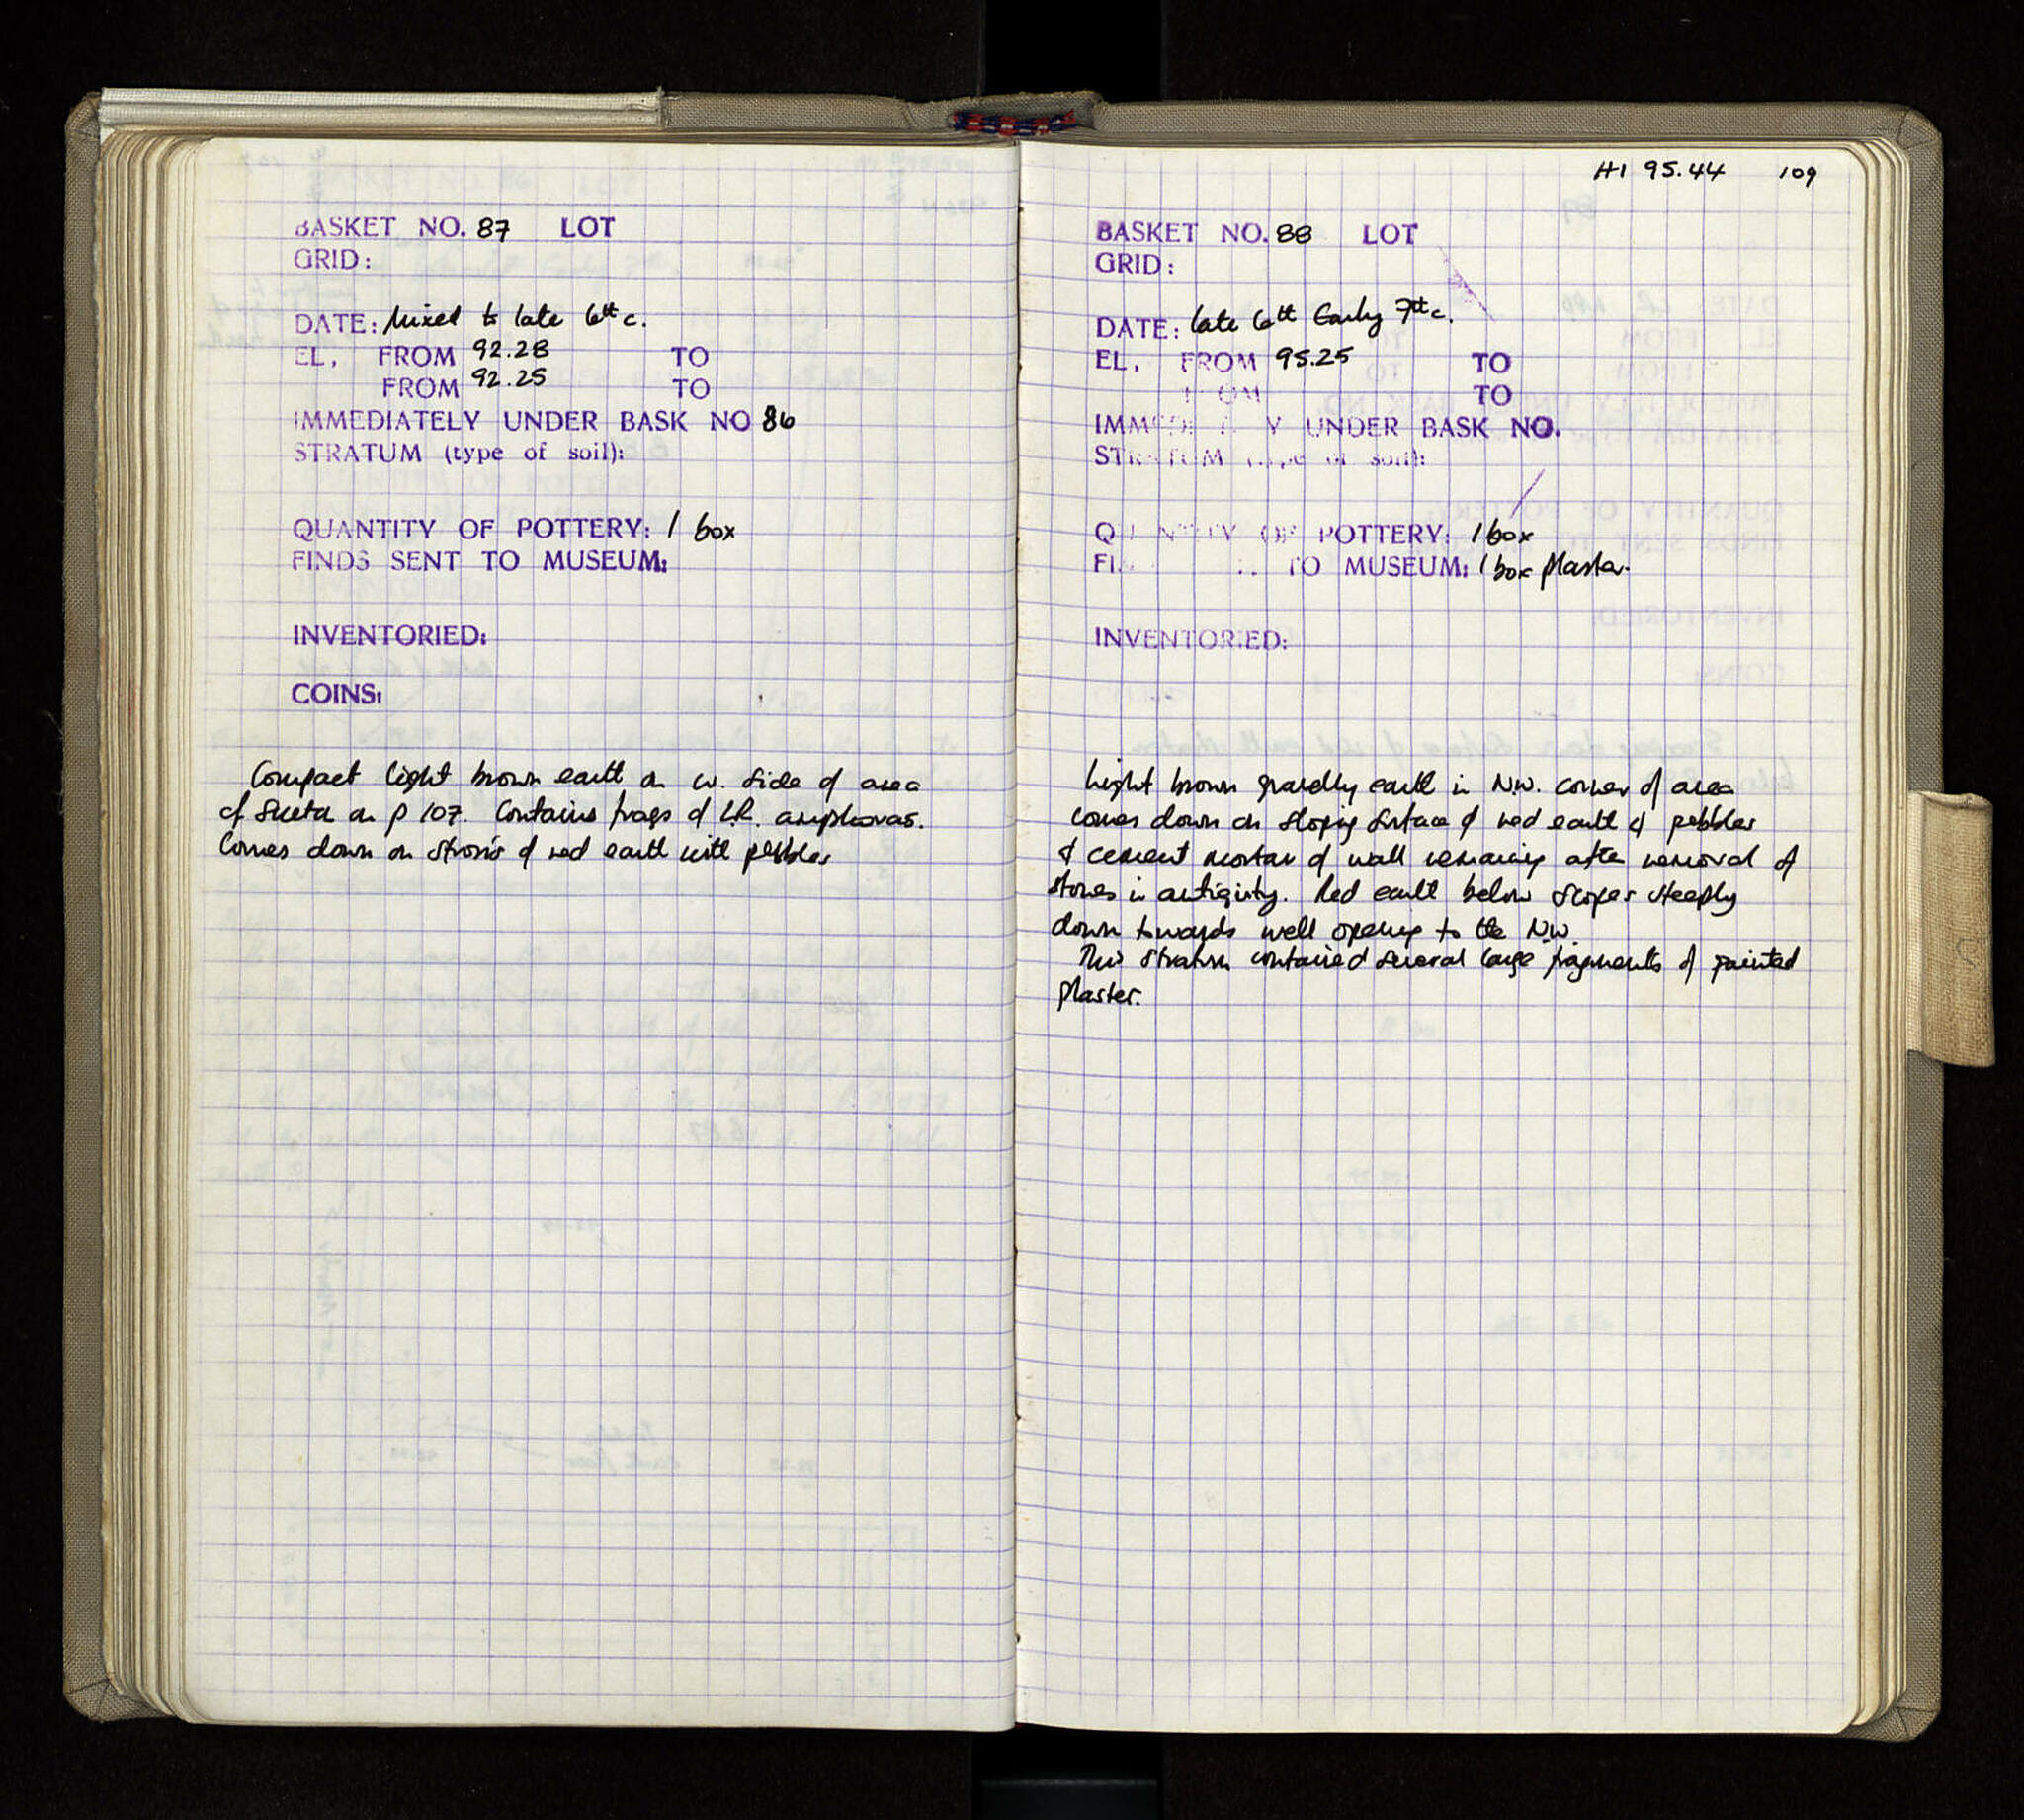 BASKET NO. 87 LOT
GRID:
DATE: Mixed to late 6th c.
EL, FROM 92.28 TO
FROM 92.25 TO
IMMEDIATELY UNDER BASK NO 86
STRATUM (type of soil):
QUANTITY OF POTTERY: 1 box
FINDS SENT TO MUSEUM:
INVENTORIED:
COINS:
Compact light brown earth on W. side of area
of Sketch on p 107. Contains frags of L.R. amphoras.
Comes down on strosis of red earth with pebbles
HI 95.44 109
BASKET NO. 88 LOT
GRID:
DATE: late 6th Early 7th c.
EL, FROM 95.25 TO
FROM TO
IMMEDIATELY UNDER BASK NO.
STRATUM (type of soil):
QUANTITY OF POTTERY: 1 box
FINDS SENT TO MUSEUM: 1 box plaster.
INVENTORIED:
Light brown gravelly earth in N.W. corner of area
comes down on sloping surface of red earth & pebbles
& cement mortar of wall remaining after removal of
stones in antiquity. Red earth below slopes steeply
down towards well opening to the N.W.
This stratum contained several large fragments of painted
plaster.